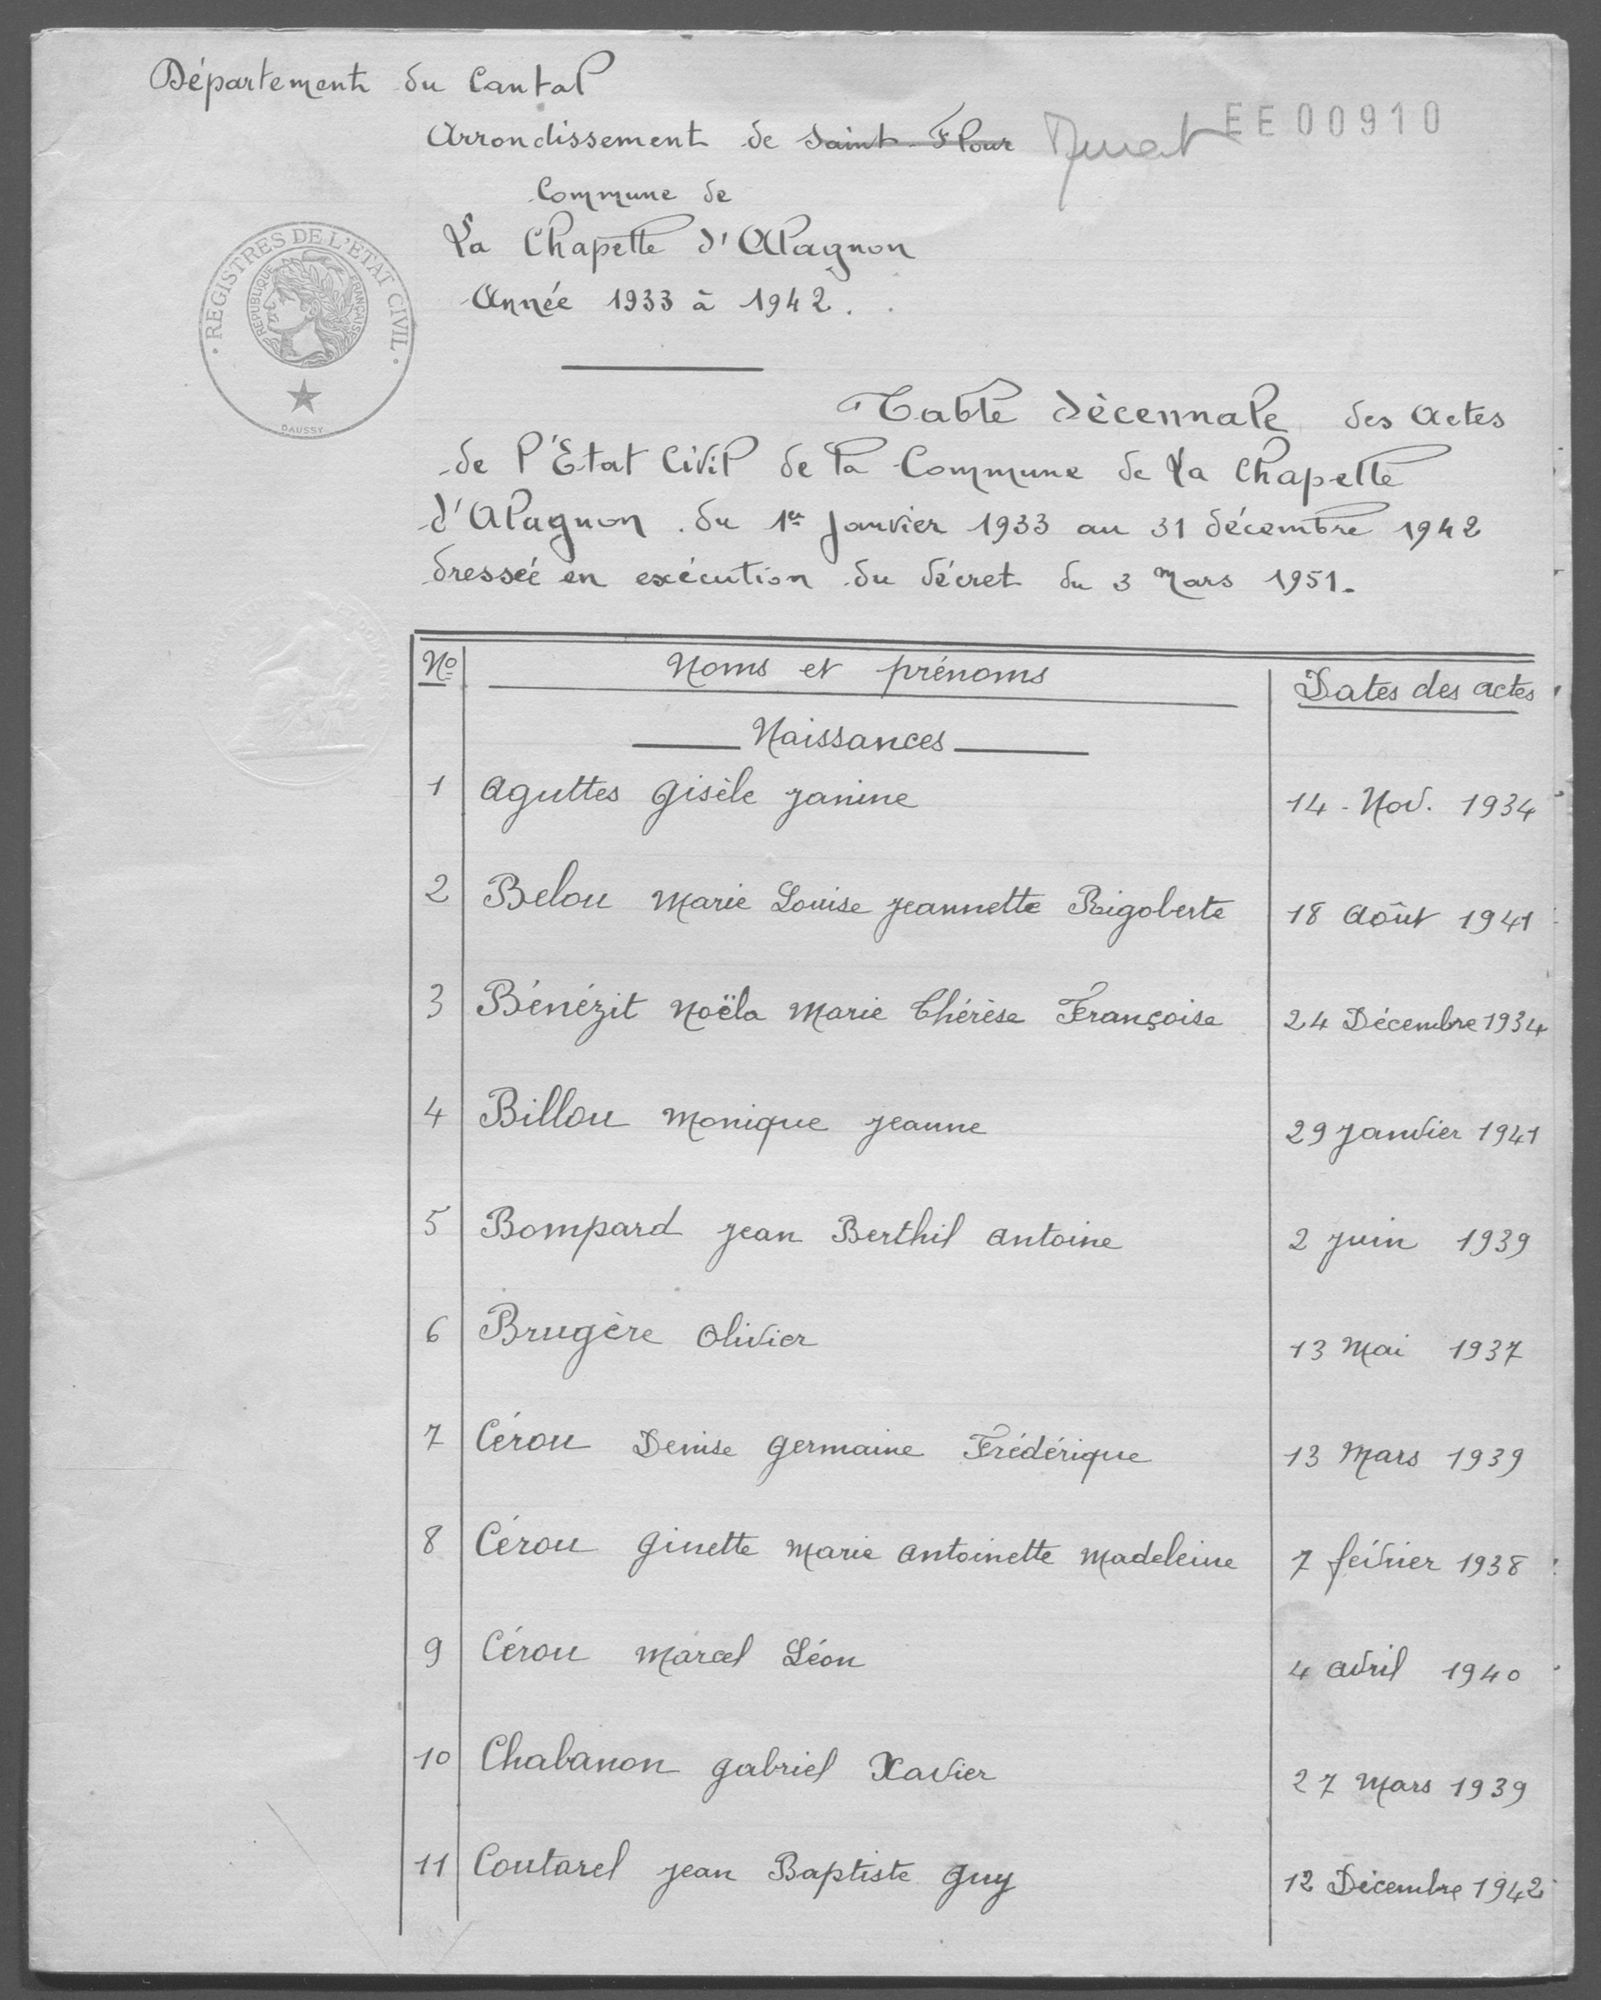 Département du Cantal
Arrondissement de Saint-Flour Murat EE00910
Commune de
La Chapelle d'Alagnon
Année 1933 à 1942.
REGISTRES DE L'ETAT CIVIL
REPUBLIQUE FRANÇAISE
DAUSSY
Table décennale des Actes
de l'Etat Civil de la Commune de La Chapelle
d'Alagnon du 1er Janvier 1933 au 31 décembre 1942
dressée en exécution du décret du 3 Mars 1951.
No Noms et prénoms Dates des actes
Naissances
1 Aguttes Gisèle Janine 14 - Nov. 1934
2 Belou Marie Louise Jeannette Rigoberte 18 Août 1941
3 Bénézit Noëla Marie Thérèse Françoise 24 Décembre 1934
4 Billou Monique Jeanne 29 Janvier 1941
5 Bompard Jean Berthil Antoine 2 Juin 1939
6 Brugère Olivier 13 Mai 1937
7 Cérou Denise Germaine Frédérique 13 Mars 1939
8 Cérou Ginette Marie Antoinette Madeleine 7 février 1938
9 Cérou Marcel Léon 4 avril 1940
10 Chabanon Gabriel Xavier 27 Mars 1939
11 Coutarel Jean Baptiste Guy 12 Décembre 1942